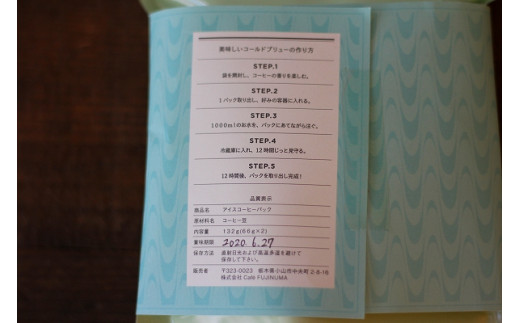 美味しいコールドブリューの作り方
STEP.1
袋を開封し、コーヒーの香りを楽しむ。
STEP.2
1パック取り出し、好みの容器に入れる。
STEP.3
1000mlのお水を、パックにあてながら注ぐ。
STEP.4
冷蔵庫に入れ、12時間じっと見守る。
STEP.5
12時間後、パックを取り出し完成!
品質表示
商品名 アイスコーヒーパック
原材料名 コーヒー豆
内容量 132g(66g×2)
賞味期限 2020.6.27
保存方法 直射日光および高温多湿を避けて
保存して下さい。
販売者 〒323-0023 栃木県小山市中央町2-8-16
株式会社 Café FUJINUMA